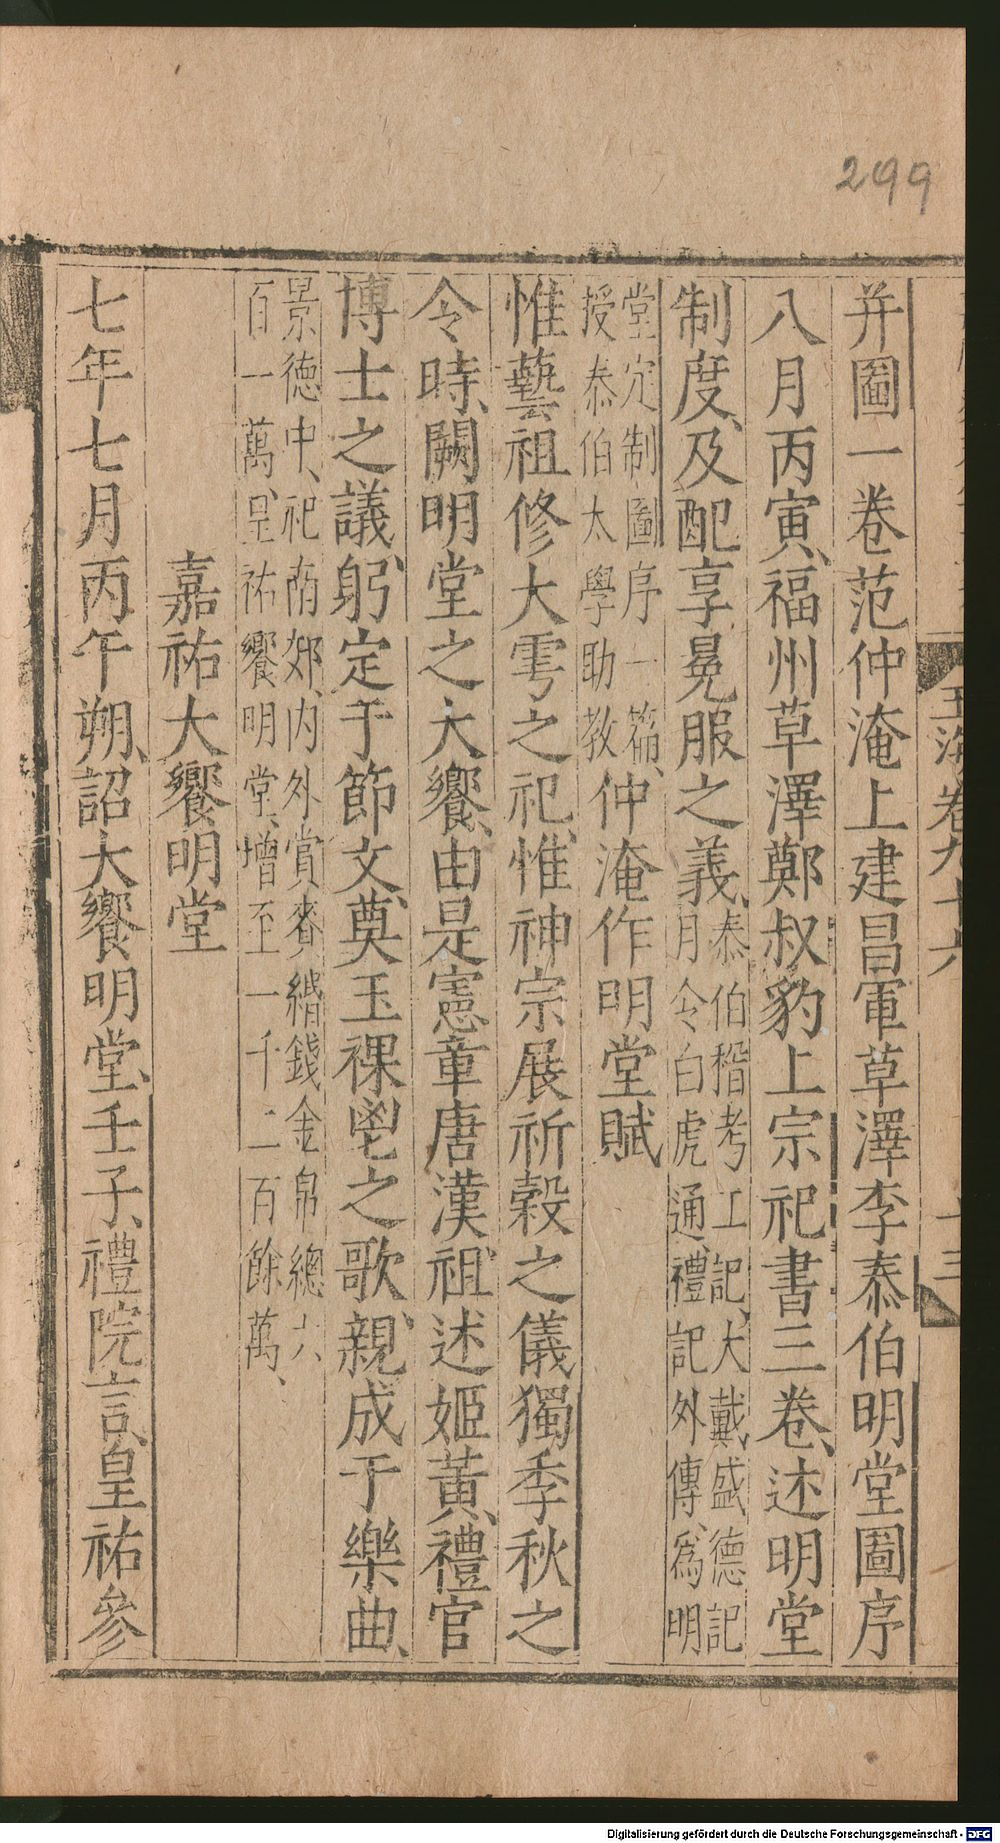 299
玉海卷九十六
十三
并圖一卷范仲淹上建昌軍草澤李泰伯明堂圖序
八月丙寅福州草澤鄭叔豹上宗祀書三卷述明堂
制度及配享冕服之義
泰伯稽考工記大戴盛德記
月令白虎通禮記外傳爲明
堂定制圖序一篇
授泰伯太學助教
仲淹作明堂賦
惟藝祖修大雩之祀惟神宗展祈穀之儀獨季秋之
令時闕明堂之大饗由是憲章唐漢祖述姬黃禮官
博士之議躬定于節文奠玉祼鬯之歌親成于樂曲
景德中祀南郊內外賞賚緡錢金帛總六
百一萬皇祐饗明堂增至一千二百餘萬
嘉祐大饗明堂
七年七月丙午朔詔大饗明堂壬子禮院言皇祐參
Digitalisierung gefördert durch die Deutsche Forschungsgemeinschaft - DFG